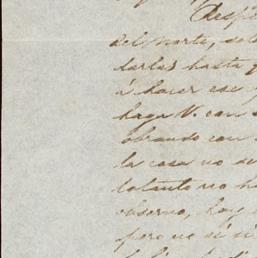 Despu
del norte, sol
darlas hasta q
á hacer ese
haga V. con
obrando con
la casa no se
lotanto no h
observo, hoy
pero no si si